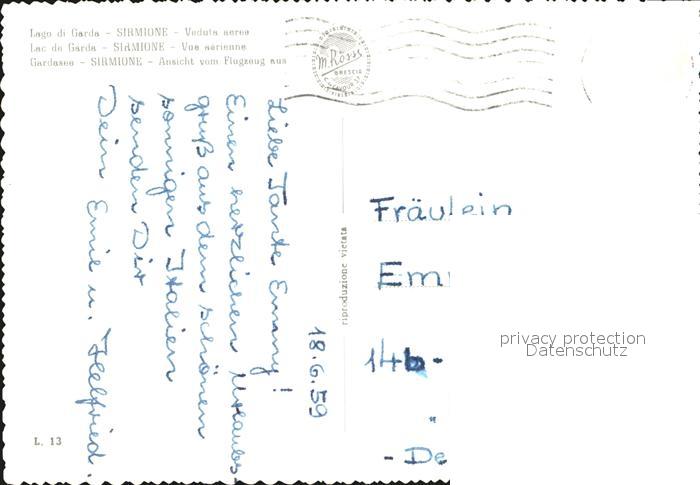 Lago di Garda - SIRMIONE - Veduta aerea
Lac de Garda - SIRMIONE - Vue aérienne
Gardasee - SIRMIONE - Ansicht vom Flugzeug aus
M. Rossi
BRESCIA
18.6.59
Liebe Tante Emmy!
Einen herzlichen Urlaubs-
gruß aus dem schönen
sonnigen Italien
senden Dir
Dein Emil u. Helfried.
riproduzione vietata
Fräulein
Em
14b-
"
- De
privacy protection
Datenschutz
L. 13